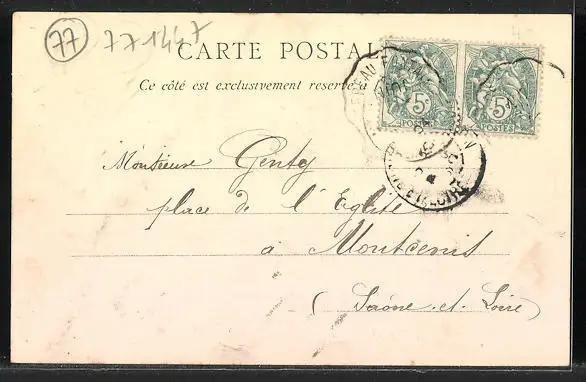 77
771447
CARTE POSTAL
Ce côté est exclusivement réservé à
5c 5c
POSTES POSTES
Monsieur Genty
place de l'Eglise
à Montcenis
(Saône-et-Loire)